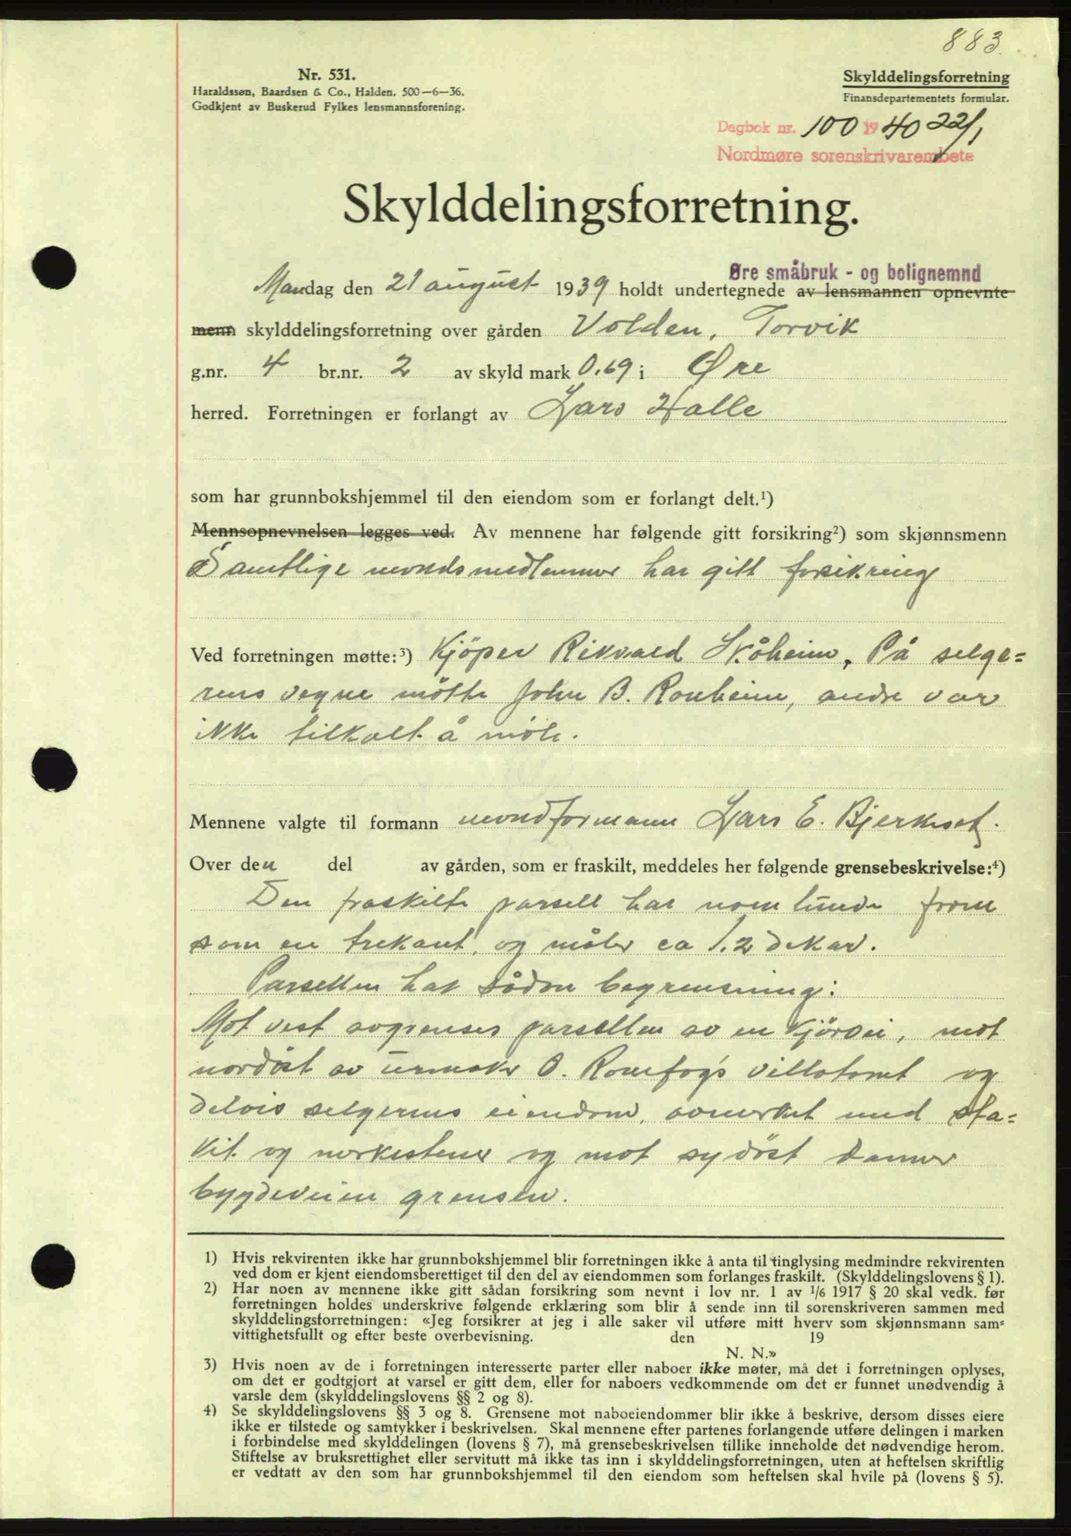 883.
Nr. 531.
Haraldssøn, Baardsen & Co., Halden. 500-6-36.
Godkjent av Buskerud Fylkes lensmannsforening.
Skylddelingsforretning
Finansdepartementets formular.
Dagbok nr. 100 1940 22/1
Nordmøre sorenskrivarembete
Skylddelingsforretning.
Øre småbruk - og bolignemnd
Mandag den 21 august 1939 holdt undertegnede av lensmannen opnevnte
menn skylddelingsforretning over gården Volden, Torvik
g.nr. 4 br.nr. 2 av skyld mark 0.69 i Øre
herred. Forretningen er forlangt av Lars Halle
som har grunnbokshjemmel til den eiendom som er forlangt delt.¹)
Mennsopnevnelsen legges ved. Av mennene har følgende gitt forsikring²) som skjønnsmenn
Samtlige nemdsmedlemmer har gitt forsikring
Ved forretningen møtte:³) Kjöper Rikvald Skåheim, På selge=
rens vegne mötte John B. Ronheim, andre var
ikke tilkalt å möte.
Mennene valgte til formann nemdformann Lars E. Bjerkeset.
Over den del av gården, som er fraskilt, meddeles her følgende grensebeskrivelse:⁴)
Den fraskilte parsell har noenlunde form
som en trekant, og måler ca 1.2 dekar.
Parsellen har sådan begrensning:
Mot vest avgrenses parsellen av en kjörvei, mot
nordöst av urmaker O. villatomt og
delvis selgerens eiendom, avmerket med sta=
kit og merkestener og mot sydöst danner
bygdeveien grensen.
1) Hvis rekvirenten ikke har grunnbokshjemmel blir forretningen ikke å anta til tinglysing medmindre rekvirenten
ved dom er kjent eiendomsberettiget til den del av eiendommen som forlanges fraskilt. (Skylddelingslovens § 1).
2) Har noen av mennene ikke gitt sådan forsikring som nevnt i lov nr. 1 av ¹/6 1917 § 20 skal vedk. før
forretningen holdes underskrive følgende erklæring som blir å sende inn til sorenskriveren sammen med
skylddelingsforretningen: «Jeg forsikrer at jeg i alle saker vil utføre mitt hverv som skjønnsmann sam=
vittighetsfullt og efter beste overbevisning. den 19
N. N.»
3) Hvis noen av de i forretningen interesserte parter eller naboer ikke møter, må det i forretningen oplyses,
om det er godtgjort at varsel er gitt dem, eller for naboers vedkommende om det er funnet unødvendig å
varsle dem (skylddelingslovens §§ 2 og 8).
4) Se skylddelingslovens §§ 3 og 8. Grensene mot naboeiendommer blir ikke å beskrive, dersom disses eiere
ikke er tilstede og samtykker i beskrivelsen. Skal mennene efter partenes forlangende utføre delingen i marken
i forbindelse med skylddelingen (lovens § 7), må grensebeskrivelsen tillike inneholde det nødvendige herom.
Stiftelse av bruksrettighet eller servitutt må ikke tas inn i skylddelingsforretningen, uten at heftelsen skriftlig
er vedtatt av den som har grunnbokshjemmel til den eiendom som heftelsen skal hvile på (lovens § 5).